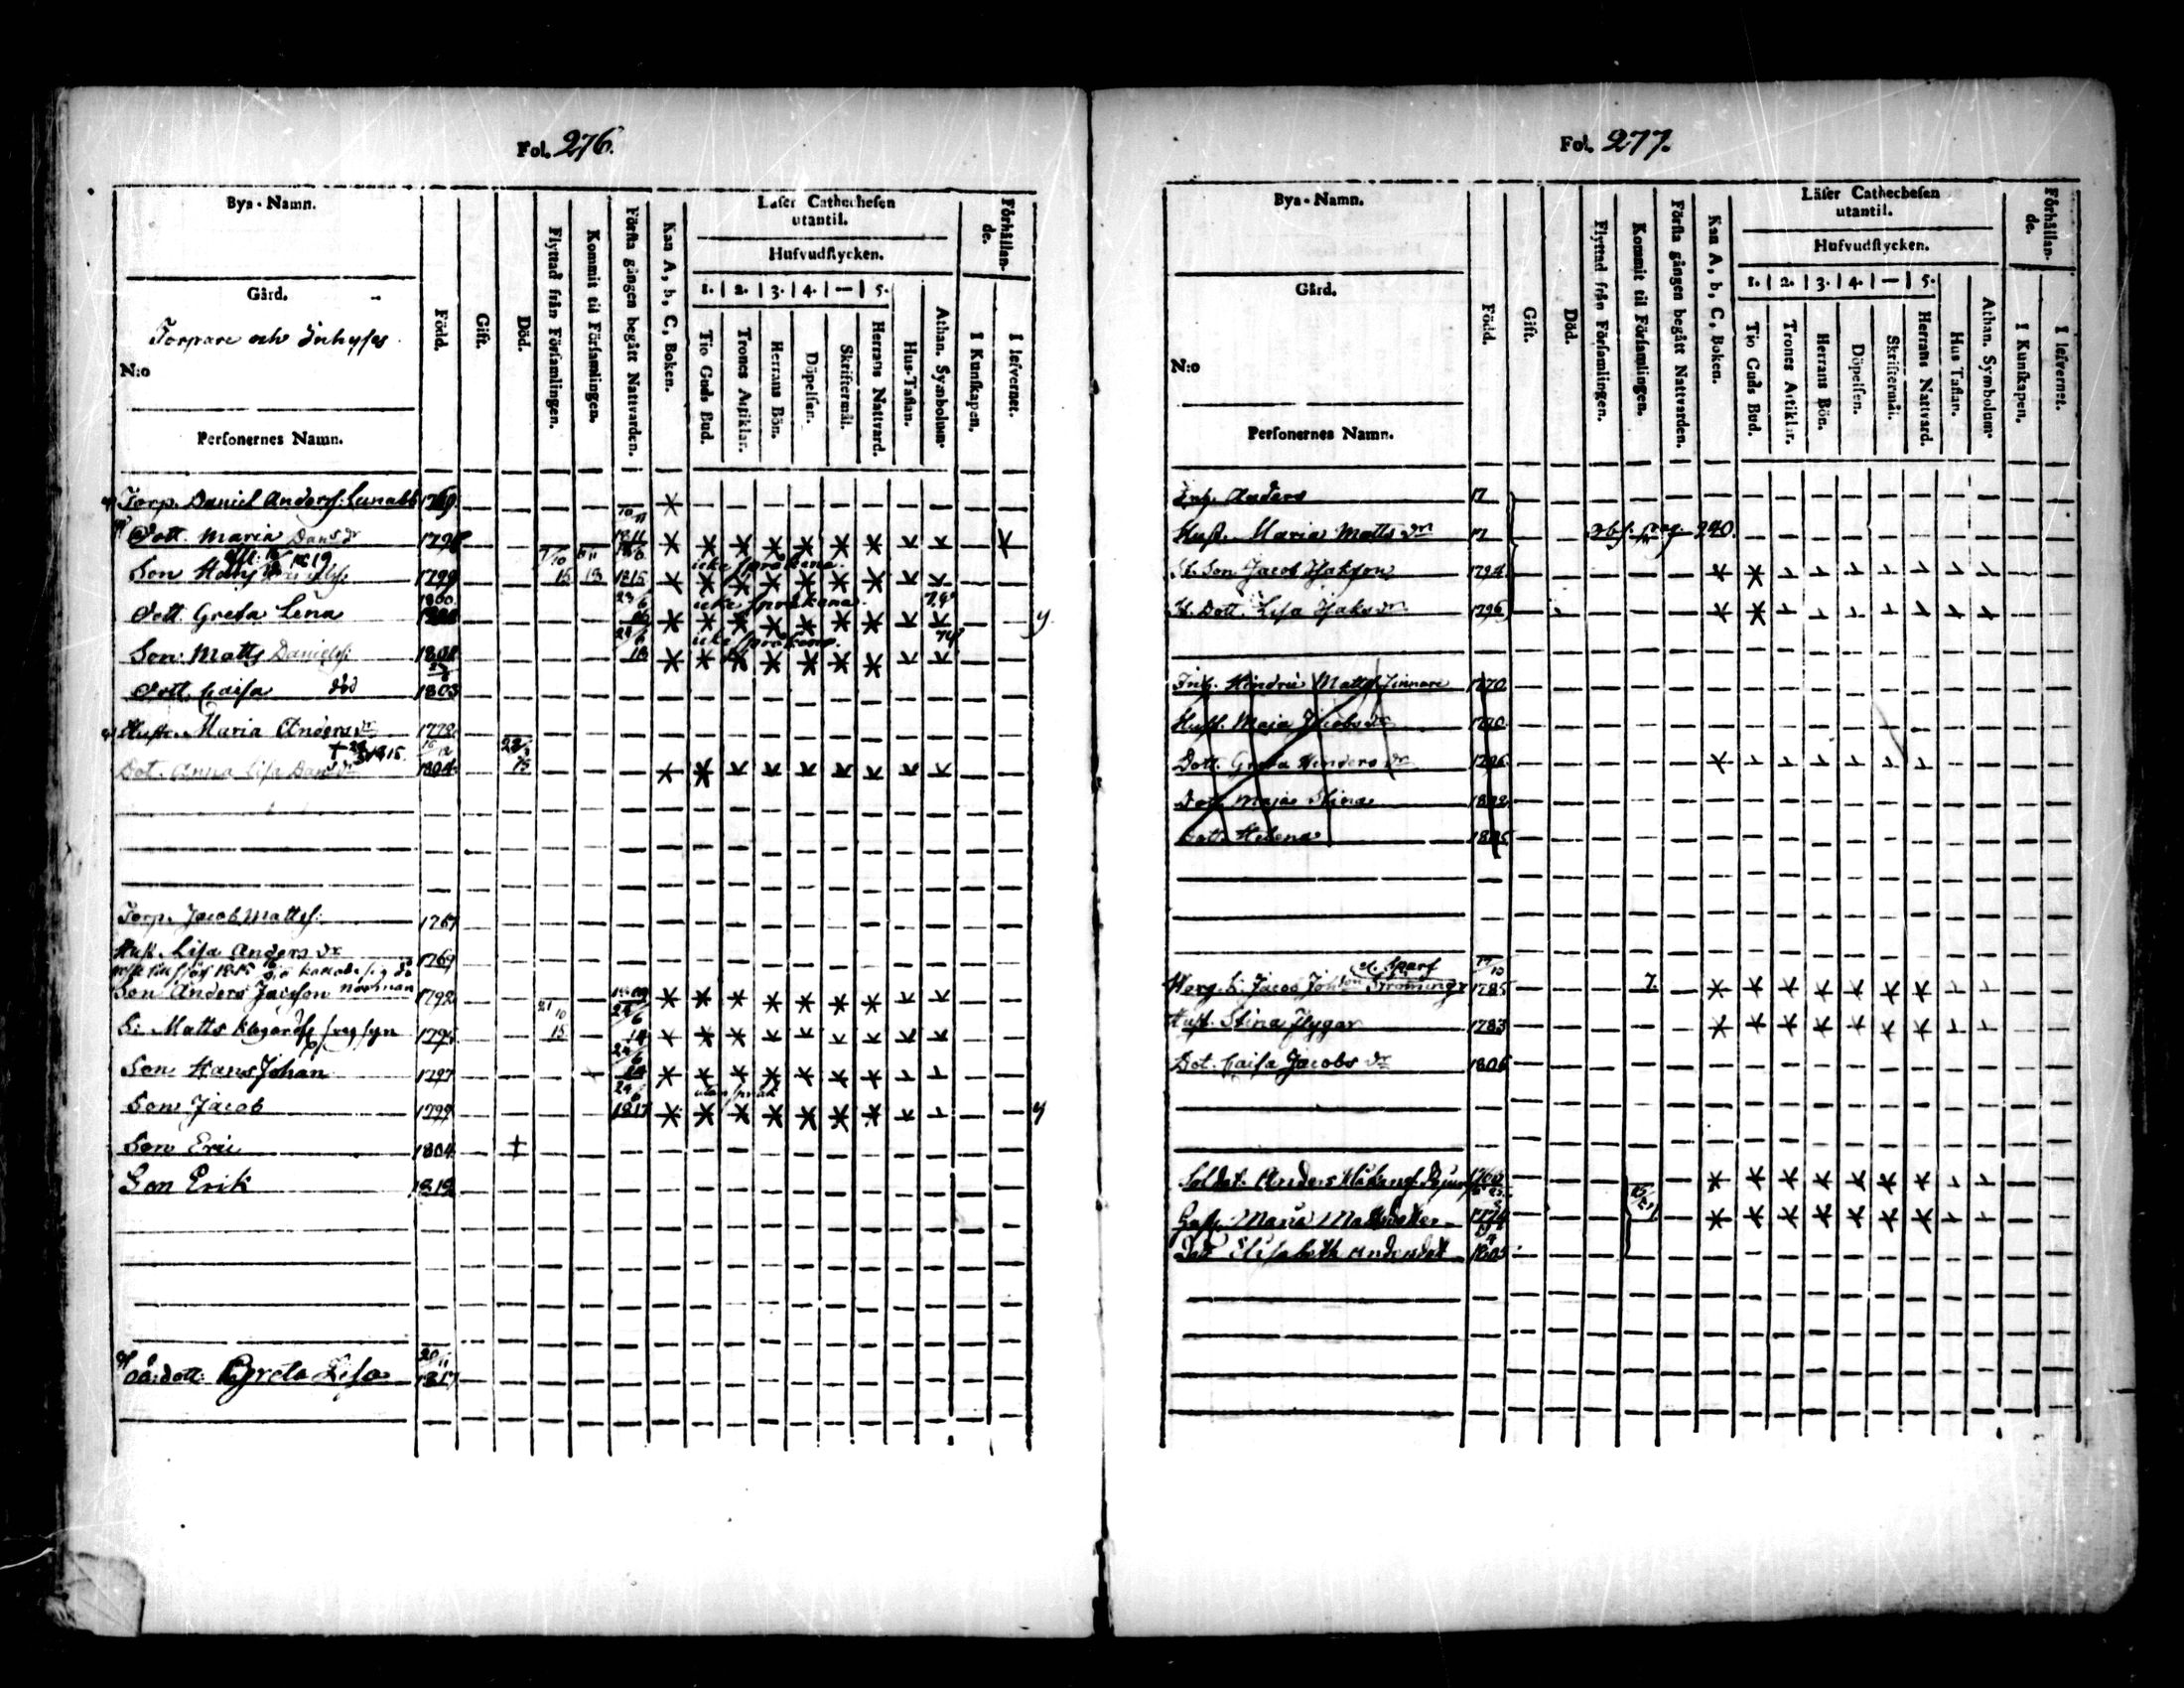 Fol. 276.
Bya-Namn.
Gård.
Torpare och Inhyses
N:o
Personernes Namn.
Född.
Gift.
Död.
Flyttad från Församlingen.
Kommit til Församlingen.
Första gången begått Nattvarden.
Kan A, b, C, Boken.
Läser Cathechesen
utantil.
Hufvudstycken.
1. 2. 3. 4. — 5.
Tio Guds Bud.
Trones Artiklar.
Herrans Bön.
Döpelsen.
Skriftermål.
Herrans Nattvard.
Hus-Taflan.
Athan. Symbolum.
Förhållan-
de.
I Kunskapen.
I lefvernet.
Torp. Daniel Anders: 1769
Dott. Maria Dans dr
Son Hans 1799 15 13 1815
icke språkena
Dott Greta Lena 1800
icke språkena
Son Matts Daniels: 1801 18
Dott. Caisa död 1803
Hustr. Maria Anders dr 1772
Dot. Anna Lisa Dans dr 1804 28/3 15
Torp. Jacob Matts: 1767
Hust. Lisa Anders dr 1769
Son Anders Jacsson Norrman 1792
S: Matts 1795 21/10 15 24/6 14
Son Hans Johan 1797 24/6
Son Jacob 1799 24/6 1817
utan språk
Son Eric 1804 +
Son Erik 1812
dott: Greta Lisa 20/11 1817
Fol. 277.
Bya-Namn.
Gård.
N:o
Personernes Namn.
Född.
Gift.
Död.
Flyttad från Församlingen.
Kommit til Församlingen.
Första gången begått Nattvarden.
Kan A, b, C, Boken.
Läser Cathechesen
utantil.
Hufvudstycken.
1. 2. 3. 4. — 5.
Tio Guds Bud.
Trones Artiklar.
Herrans Bön.
Döpelsen.
Skriftermål.
Herrans Nattvard.
Hus Taflan.
Athan. Symbolum.
Förhållan-
de.
I Kunskapen.
I lefvernet.
Inh. Anders 17
Hust. Maria Matts dr 17 pag. 240.
St. Son Jacob Isakson 1794
St. Dott. Lisa Isaks dr 1796
Inh. Hindric Matts: 1770
Hust. Maja Jacobs dr 1770
Dott. Greta Hinders dr 1796
Dott. Maja Stina 1802
Dott. Helena 1805
Jacob Johsson Strömming 1785 7.
el. Sparf
Hust. Stina Flygar 1783
Dot. Caisa Jacobs dr 1806
Soldat. Anders
Hust. Maria Matsdotter 1774
Dott Elisabeth Andersdott 1805